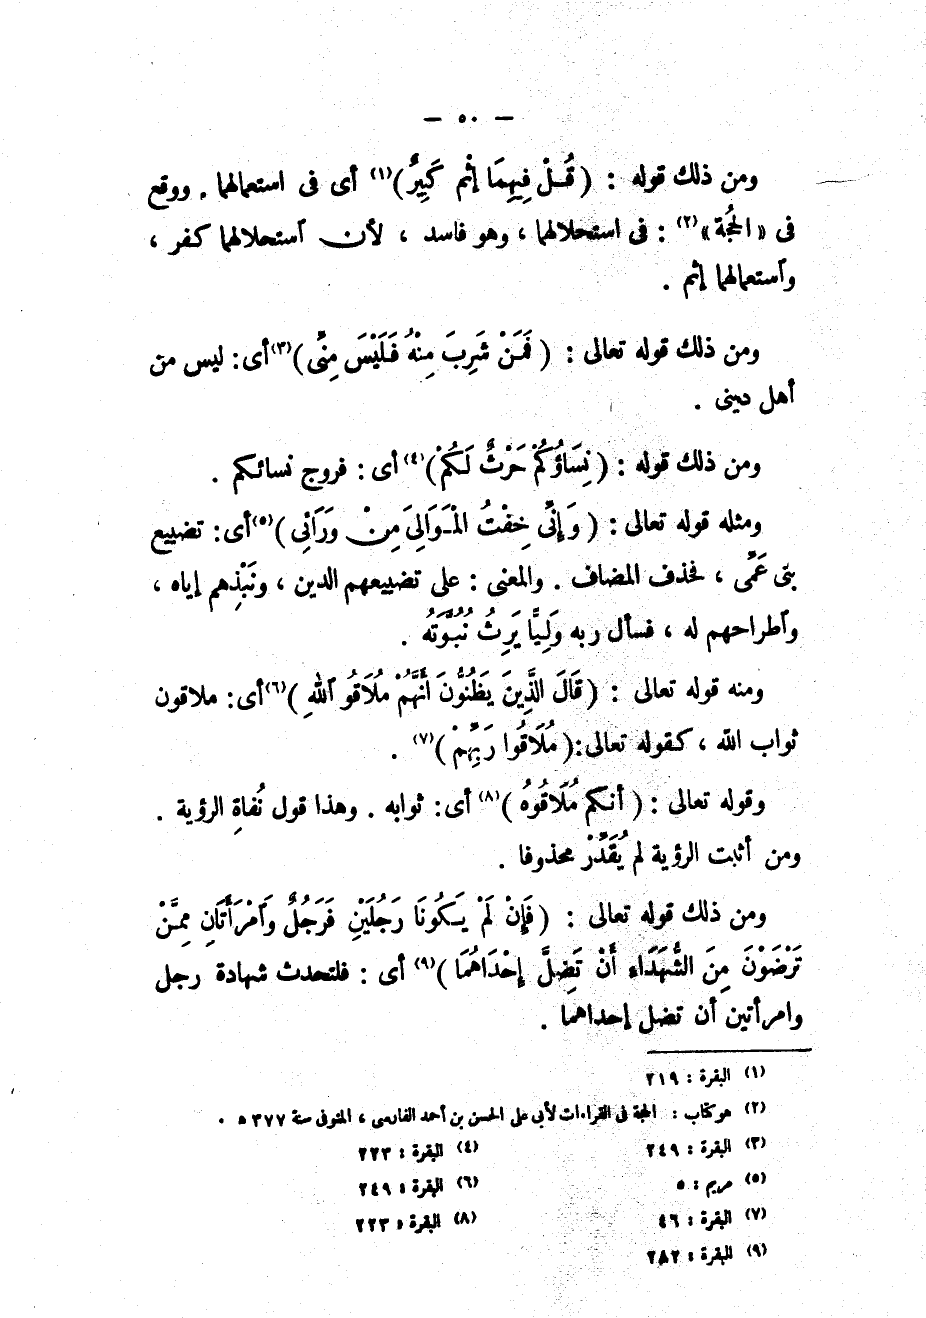 — ٥٠ —
ومن ذلك قوله : ( قُلْ فِيهِمَا إِثْم كَبِيرٌ )(١) أى فى استعمالهما . ووقع
فى «الحُجَّة»(٢) : فى استحلالهما ، وهو فاسد ، لأن ٱستحلالهما كفر ،
وٱستعمالهما إثم .
ومن ذلك قوله تعالى : ( فَمَنْ شَرِبَ مِنْهُ فَلَيْسَ مِنِّى )(٣) أى : ليس من
أهل دينى .
ومن ذلك قوله : ( نِسَاؤُكُمْ حَرْثٌ لَكُمْ )(٤) أى : فروج نسائكم .
ومثله قوله تعالى : ( وَإِنِّى خِفْتُ الْمَوَالِىَ مِنْ وَرَائِى )(٥) أى : تضييع
بنى عَمِّى ، فحذف المضاف . والمعنى : على تضييعهم الدين ، ونَبْذِهم إياه ،
وٱطراحهم له ، فسأل ربه وَلِيًّا يَرِثُ نُبُوَّتَهُ .
ومنه قوله تعالى : ( قَالَ الَّذِينَ يَظُنُّونَ أَنَّهُمْ مُلَاقُو ٱللهِ )(٦) أى : ملاقون
ثواب الله ، كقوله تعالى : ( مُلَاقُوا رَبِّهِمْ )(٧) .
وقوله تعالى : ( أنكم مُلَاقُوهُ )(٨) أى : ثوابه . وهذا قول نُفاةِ الرؤية .
ومن أثبت الرؤية لم يُقَدِّرْ محذوفا .
ومن ذلك قوله تعالى : ( فَإِنْ لَمْ يَكُونَا رَجُلَيْنِ فَرَجُلٌ وَٱمْرَأَتَانِ مِمَّنْ
تَرْضَوْنَ مِنَ الشُّهَدَاءِ أَنْ تَضِلَّ إِحْدَاهُمَا )(٩) أى : فلتحدث شهادة رجل
وامرأتين أن تضل إحداهما .
(١) البقرة : ٢١٩
(٢) هو كتاب : الحجة فى القراءات لأبى على الحسن بن أحمد الفارسى ، المتوفى سنة ٣٧٧ ه .
(٣) البقرة : ٢٤٩ (٤) البقرة : ٢٢٣
(٥) مريم : ٥ (٦) البقرة : ٢٤٩
(٧) البقرة : ٤٦ (٨) البقرة : ٢٢٣
(٩) البقرة : ٢٨٢